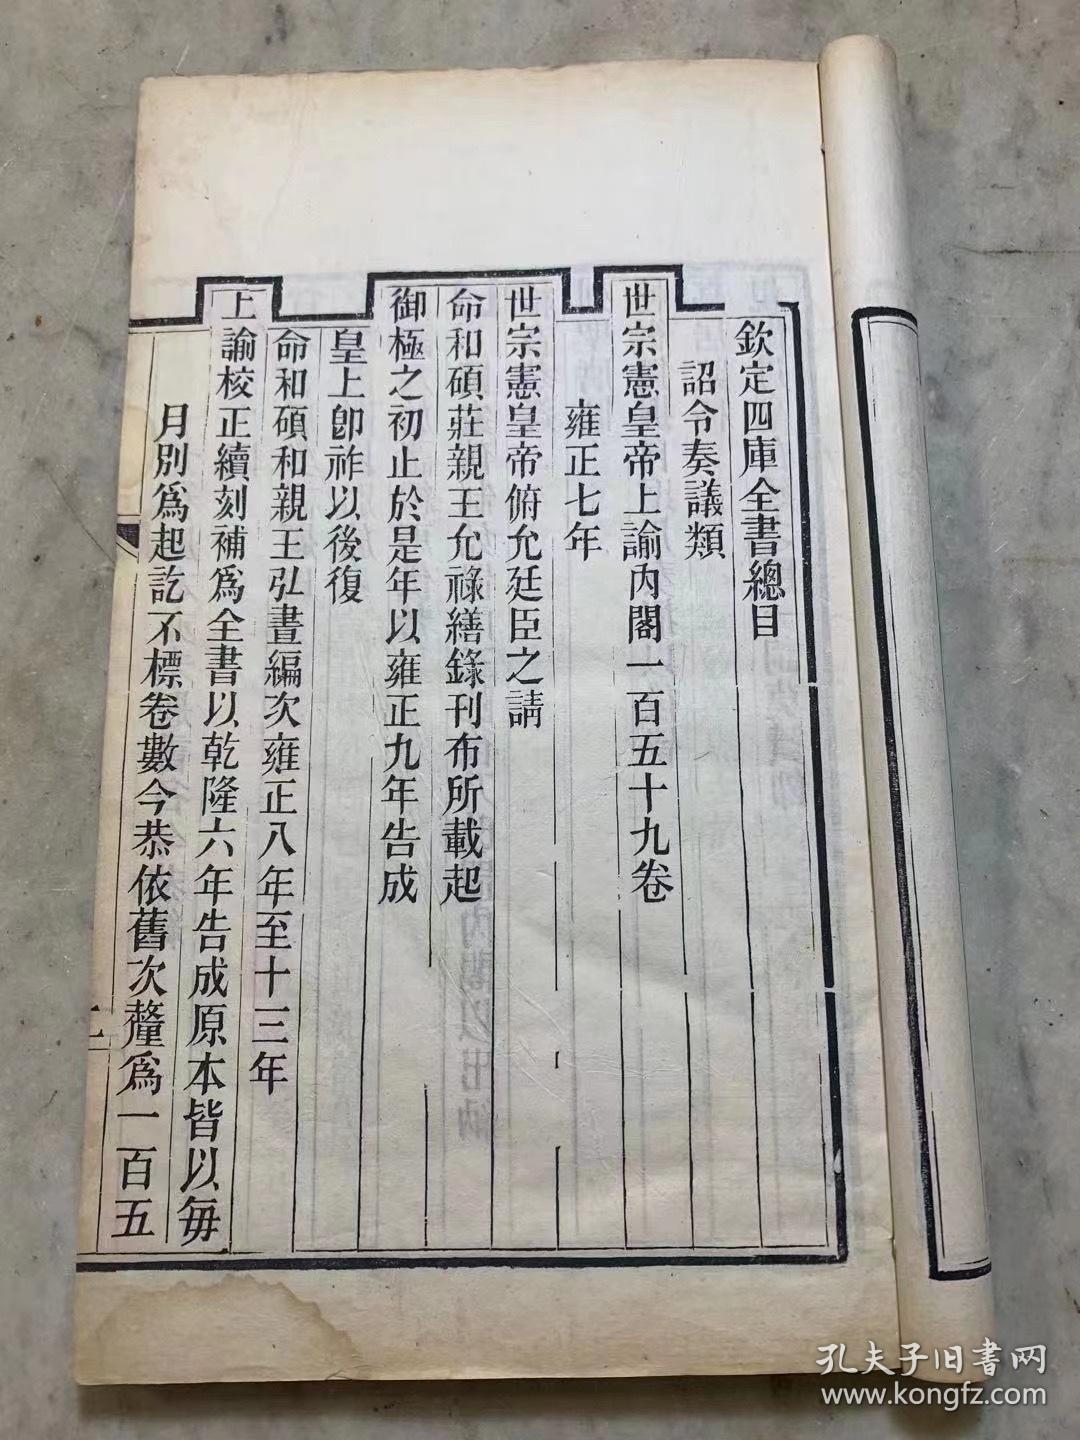 欽定四庫全書總目
詔令奏議類
世宗憲皇帝上諭內閣一百五十九卷
雍正七年
世宗憲皇帝俯允廷臣之請
命和碩莊親王允祿繕錄刊布所載起
御極之初止於是年以雍正九年告成
皇上卽祚以後復
命和碩和親王弘晝編次雍正八年至十三年
上諭校正續刻補爲全書以乾隆六年告成原本皆以每
月別爲起訖不標卷數今恭依舊次釐爲一百五
孔夫子旧書网
www.kongfz.com